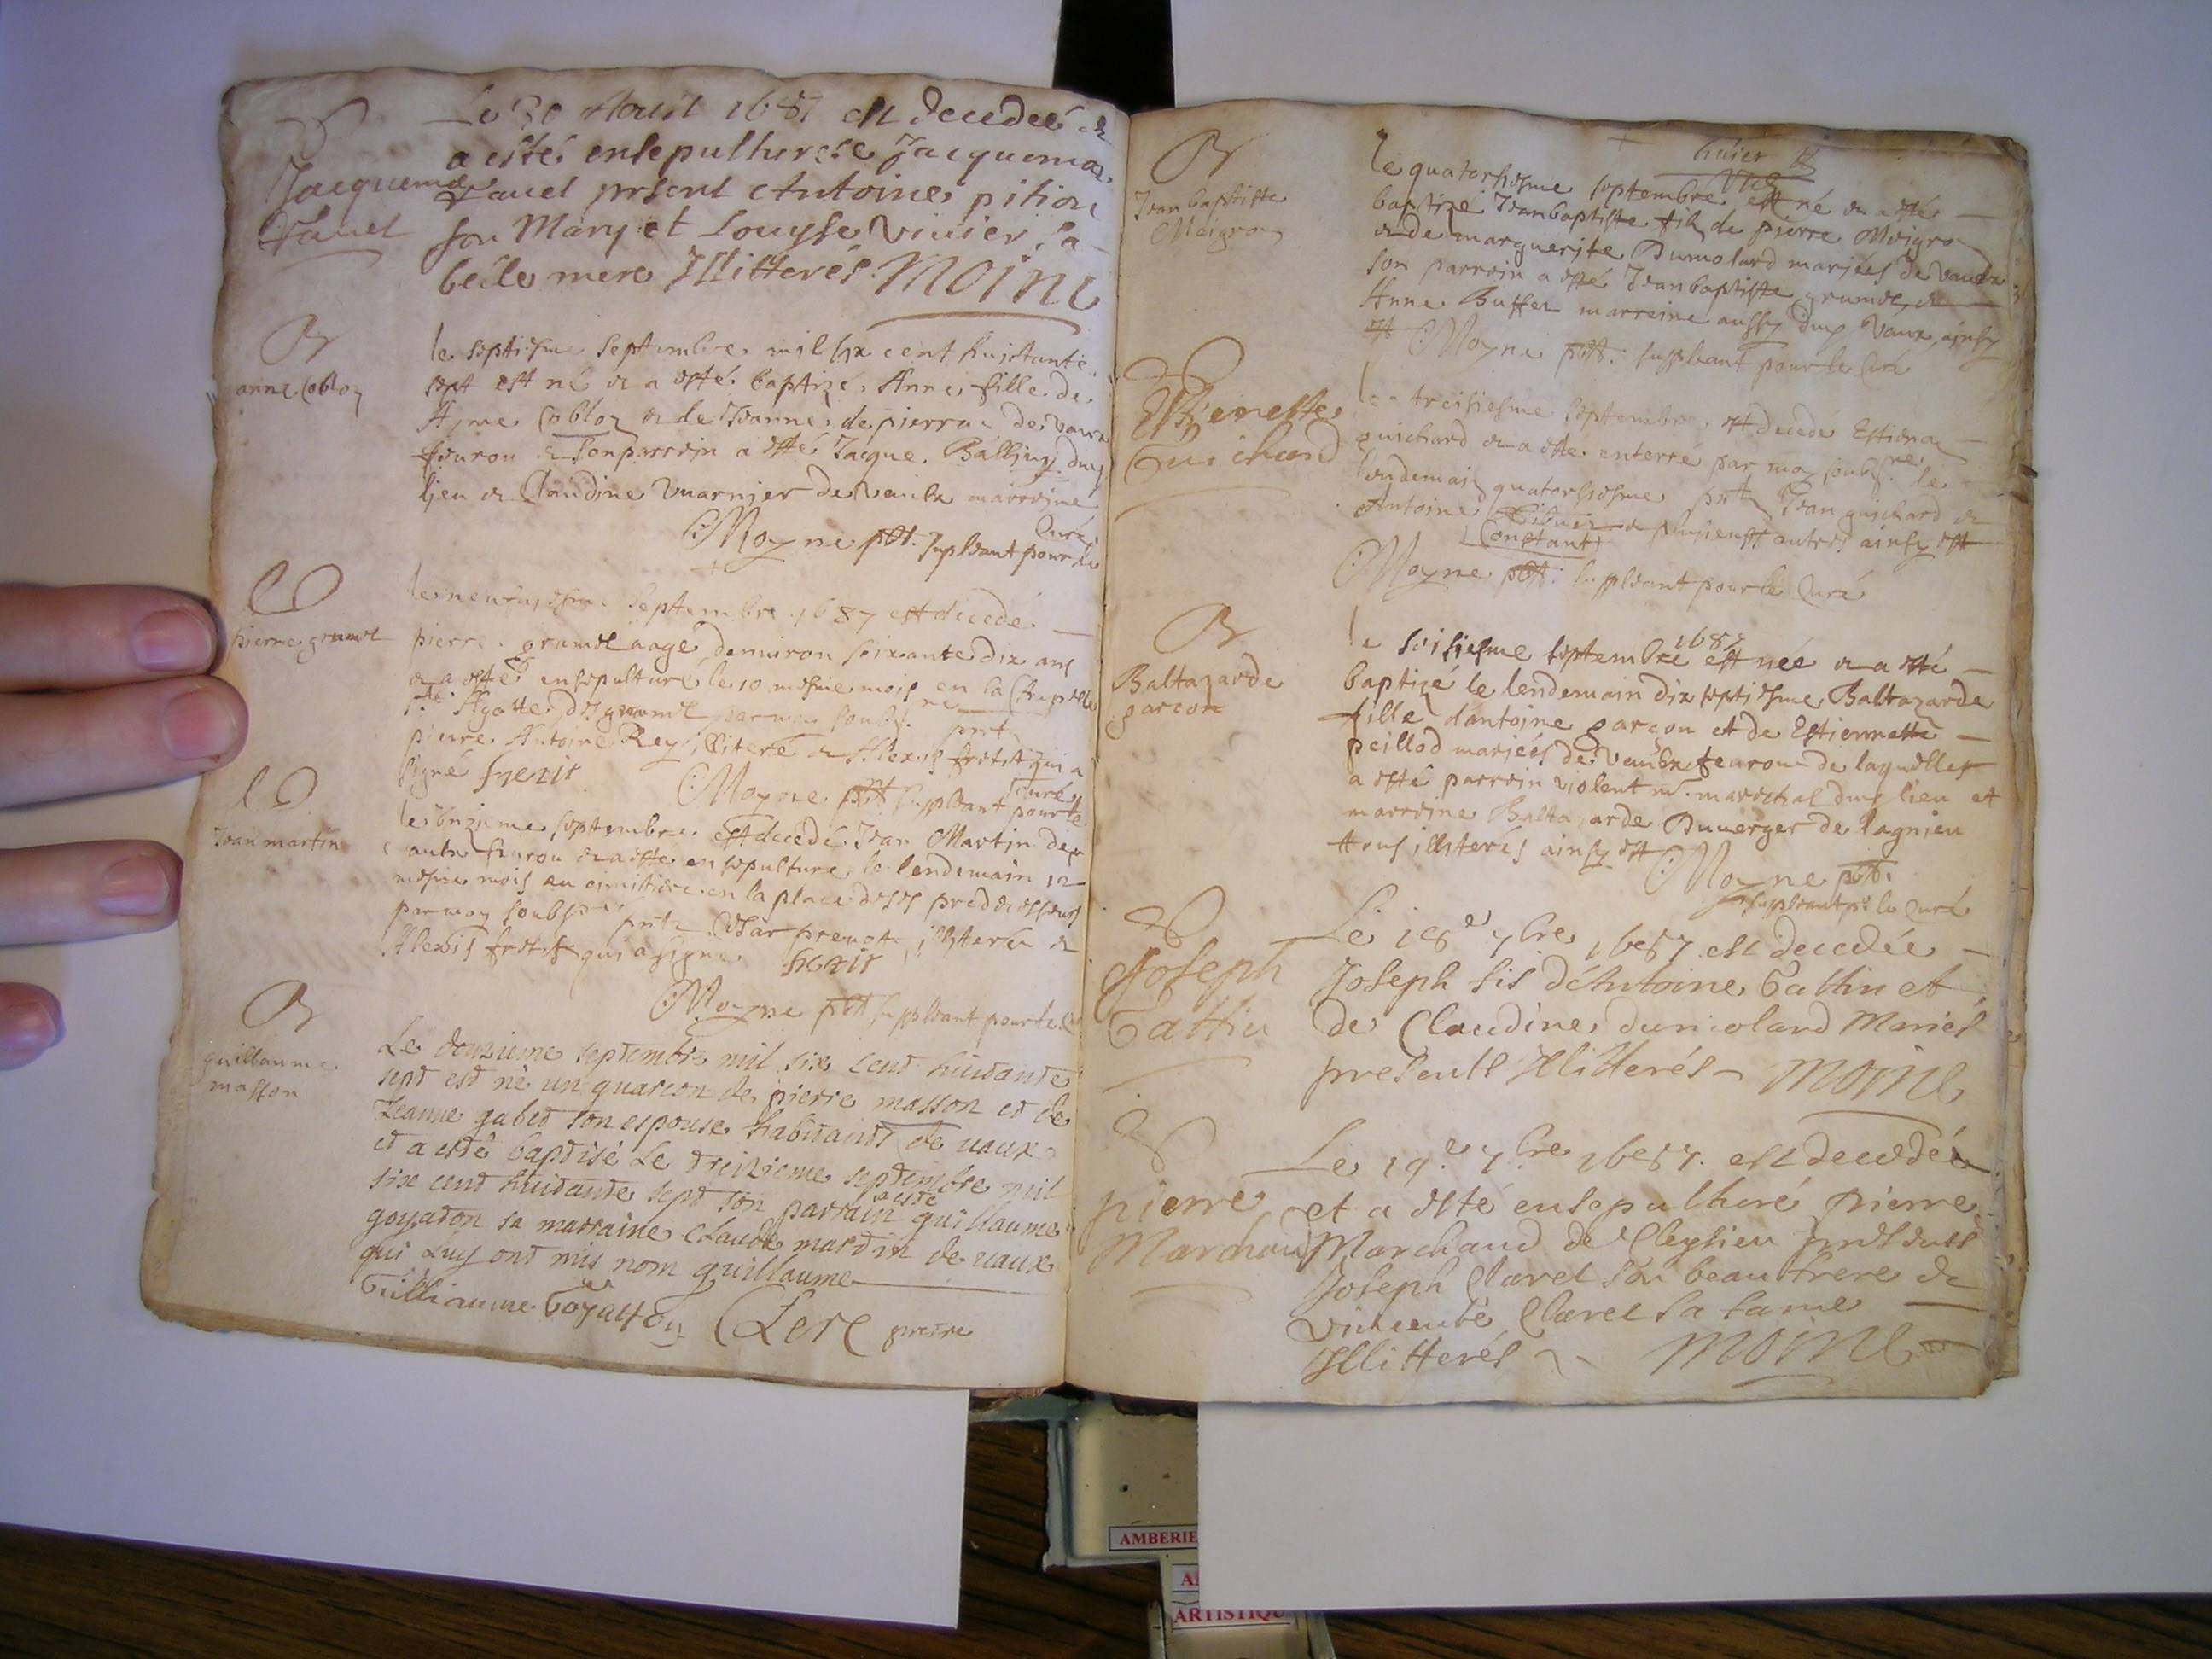 Jacquema
Favel
Le 30 Aoust 1687 est decedeé &
a estés ensepulturéé Jacquema
Favel present Antoine pition
son Mary et Louyse Vivier sa
belle mere Illitterés. MOINE
B
anne Cobloz
le septiesme Septembre mil six cent huictante
sept est né & a esté baptizé Anne fille de
Ayme Cobloz & de Jeanne de pierre de Vaux
fevrou & son parrein a esté Jacque Balluy du
lieu & Claudine Vuarnier de Vaulx marreine
Moyne pbt. supleant pour le
Curé
pierre grumel
le neufviesme Septembre 1687 est decedé
pierre grumel aagé denviron soixante dix ans
& a esté ensepulturé le 10 mesme mois en la Chapelle
Ste Agatte des grumel par moy soubs.né
pierre Antoine Rey illiteré & Alexis qui a
signé
Moyne pbt supleant pour le
Curé
Jean martin
le unzieme septembre est decedé Jean Martin de
vaulx fevrou & a esté ensepulture le lendemain 12
mesme mois au cimitiere en la place de ses predecesseurs
par moy soubsné pntz Cesar prevot illiteré &
Alexis qui a signe
Moyne pbt suppleant pour le C
B
guillaume
masson
Le douzieme septembre mil six cent huidante
sept est né un guarcon de pierre masson et de
Jeanne gabet son espouse habitants de vaux
et a esté baptisé Le treizieme septembre mil
six cent huidante sept son parrain a esté guillaume
goyaton sa marraine Claude martin de vaux
qui luy ont mis nom guillaume
Guilliaume Goyatton Clerc pretre
B
Jean baptiste
Meigroz
le quatorsiesme septembre est né & a esté
baptizé Jean baptiste fils de pierre Meigroz
& de marguerite Dumolard mariées de Vaulx
son parrein a esté Jean baptiste grumel, &
Anne Buffet marreine aussy dud Vaux, ainsy
est Moyne pbt. suppleant pour le Curé
Estienette
Guichard
le treisiesme septembre, est decedé Estiena
guichard & a esté enterré par moy soubs.né le
lendemain quatorsiesme pntz Jean guichard &
Antoine & plusieurs autres ainsy est
Constant
Moyne pbt. suppleant pour le Curé
B
Baltazarde
garcon
le seisiesme septembre 1687 est née & a esté
baptizé le lendemain dix septiesme Baltazarde
fille dantoine garçon et de Estiennette
peillod mariées de Vaulx fevrou de laquelle
a esté parrein violent mareschal dud lieu et
marreine Baltazarde Duverger de lagnieu
tous illiterés ainsy est Moyne pbt.
suppleant pr le Curé
Joseph
Gattin
Le 18e 7bre 1687 est decedée
Joseph fils d'Antoine Gattin et
de Claudine dumolard Mariés
presents Illitterés MOINE
pierre
Marchand
Le 19e 7bre 1687. est decedée
et a esté ensepulturé pierre
Marchand de Cleysieu presents
Joseph Claret son beau frere &
vincente Claret sa fame
Illitterés MOINE
AMBERIE
A
ARTISTIQU